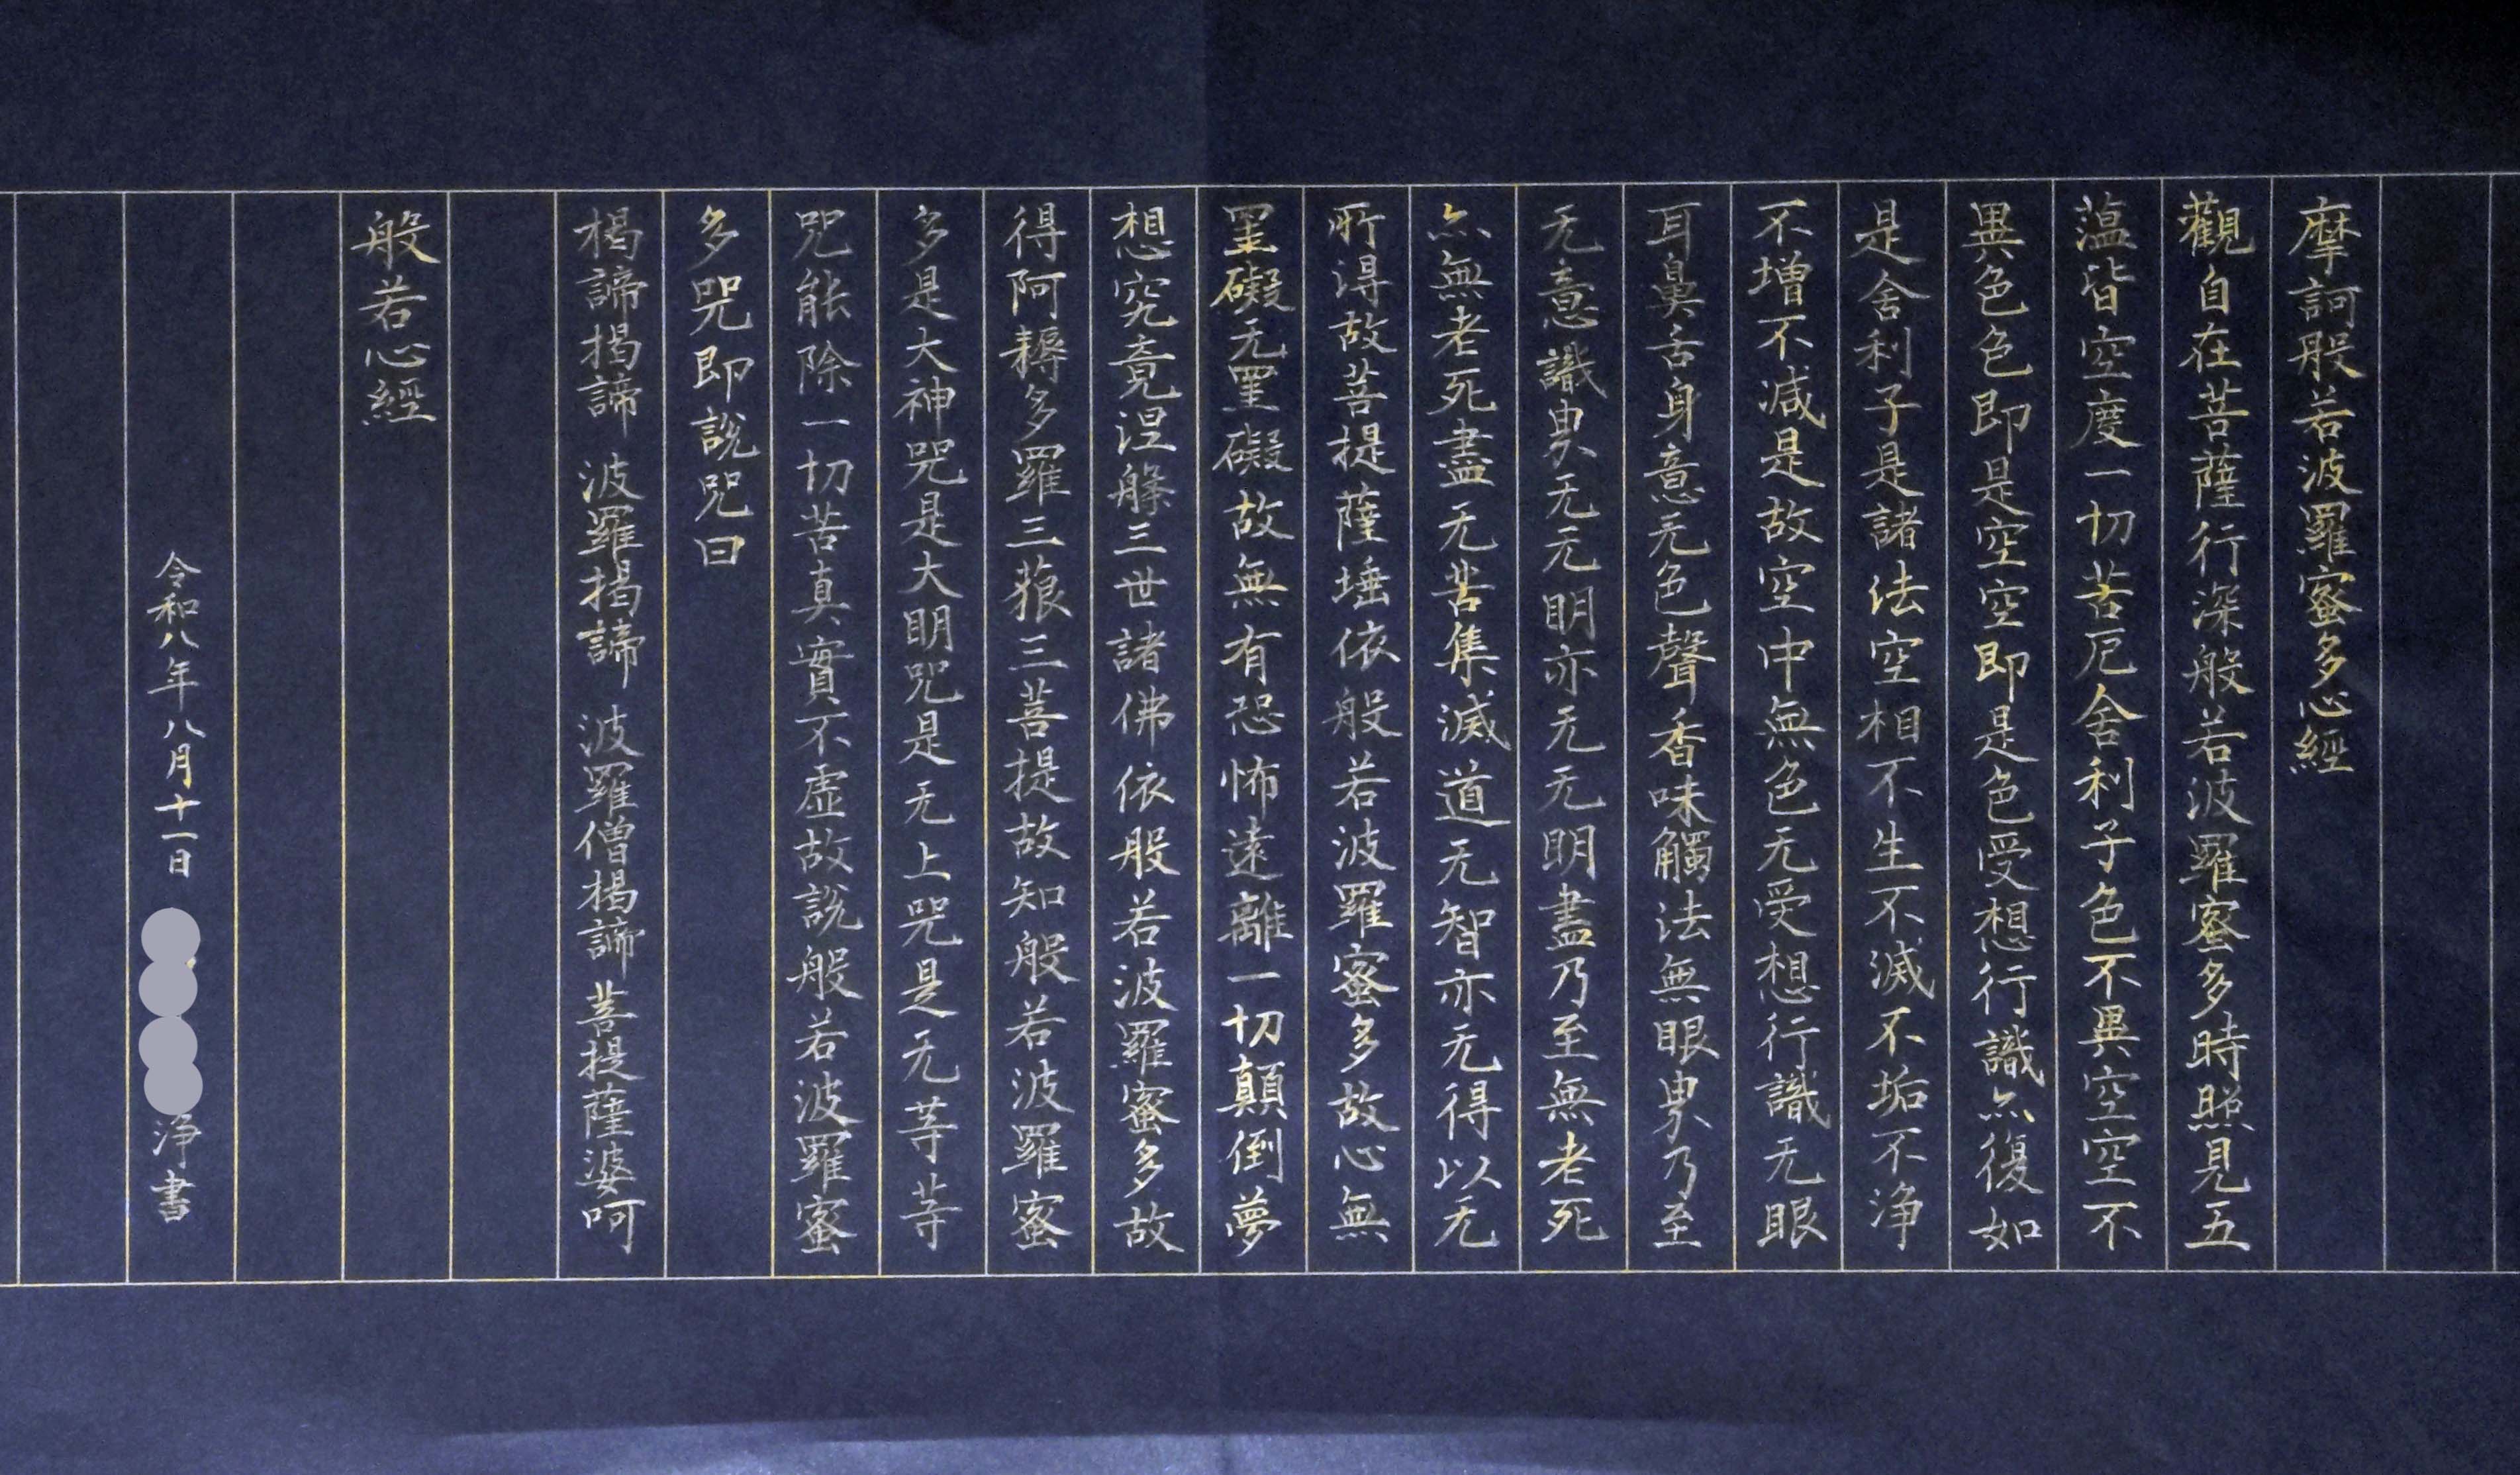 摩訶般若波羅蜜多心經
觀自在菩薩行深般若波羅蜜多時照見五
薀皆空度一切苦厄舍利子色不異空空不
異色色即是空空即是色受想行識亦復如
是舍利子是諸法空相不生不滅不垢不浄
不増不減是故空中無色无受想行識无眼
耳鼻舌身意无色聲香味觸法無眼界乃至
无意識界无无明亦无无明盡乃至無老死
亦無老死盡无苦集滅道无智亦无得以无
所得故菩提薩埵依般若波羅蜜多故心無
罣礙无罣礙故無有恐怖遠離一切顛倒夢
想究竟涅槃三世諸佛依般若波羅蜜多故
得阿耨多羅三藐三菩提故知般若波羅蜜
多是大神咒是大明咒是无上咒是无等等
咒能除一切苦真實不虛故説般若波羅蜜
多咒即説咒曰
揭諦揭諦 波羅揭諦 波羅僧揭諦 菩提薩婆呵
般若心經
令和八年八月十一日 浄書